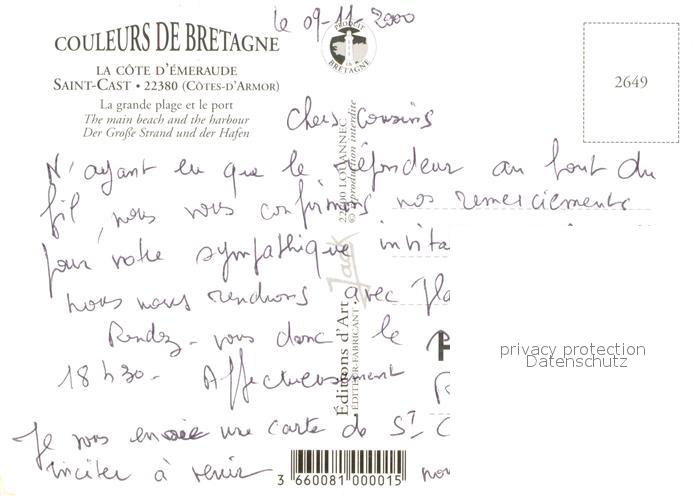 le 09-11-2000
COULEURS DE BRETAGNE
PRODUIT EN BRETAGNE
LA CÔTE D'ÉMERAUDE
SAINT-CAST • 22380 (CÔTES-D'ARMOR)
La grande plage et le port
The main beach and the harbour
Der Große Strand und der Hafen
2649
Chers Cousins
N'ayant eu que le répondeur au bout du
fil, nous vous confirmons nos remerciements
pour votre sympathique invita
nous nous rendrons avec
Rendez-vous donc le
18 h30. Affectueusement
Je vous envoie une carte de St C
inciter à venir nou
22400 LOUANNEC
© Reproduction interdite
Jack
Éditions d'Art
ÉDITEUR-FABRICANT
3 660081 000015
privacy protection
Datenschutz